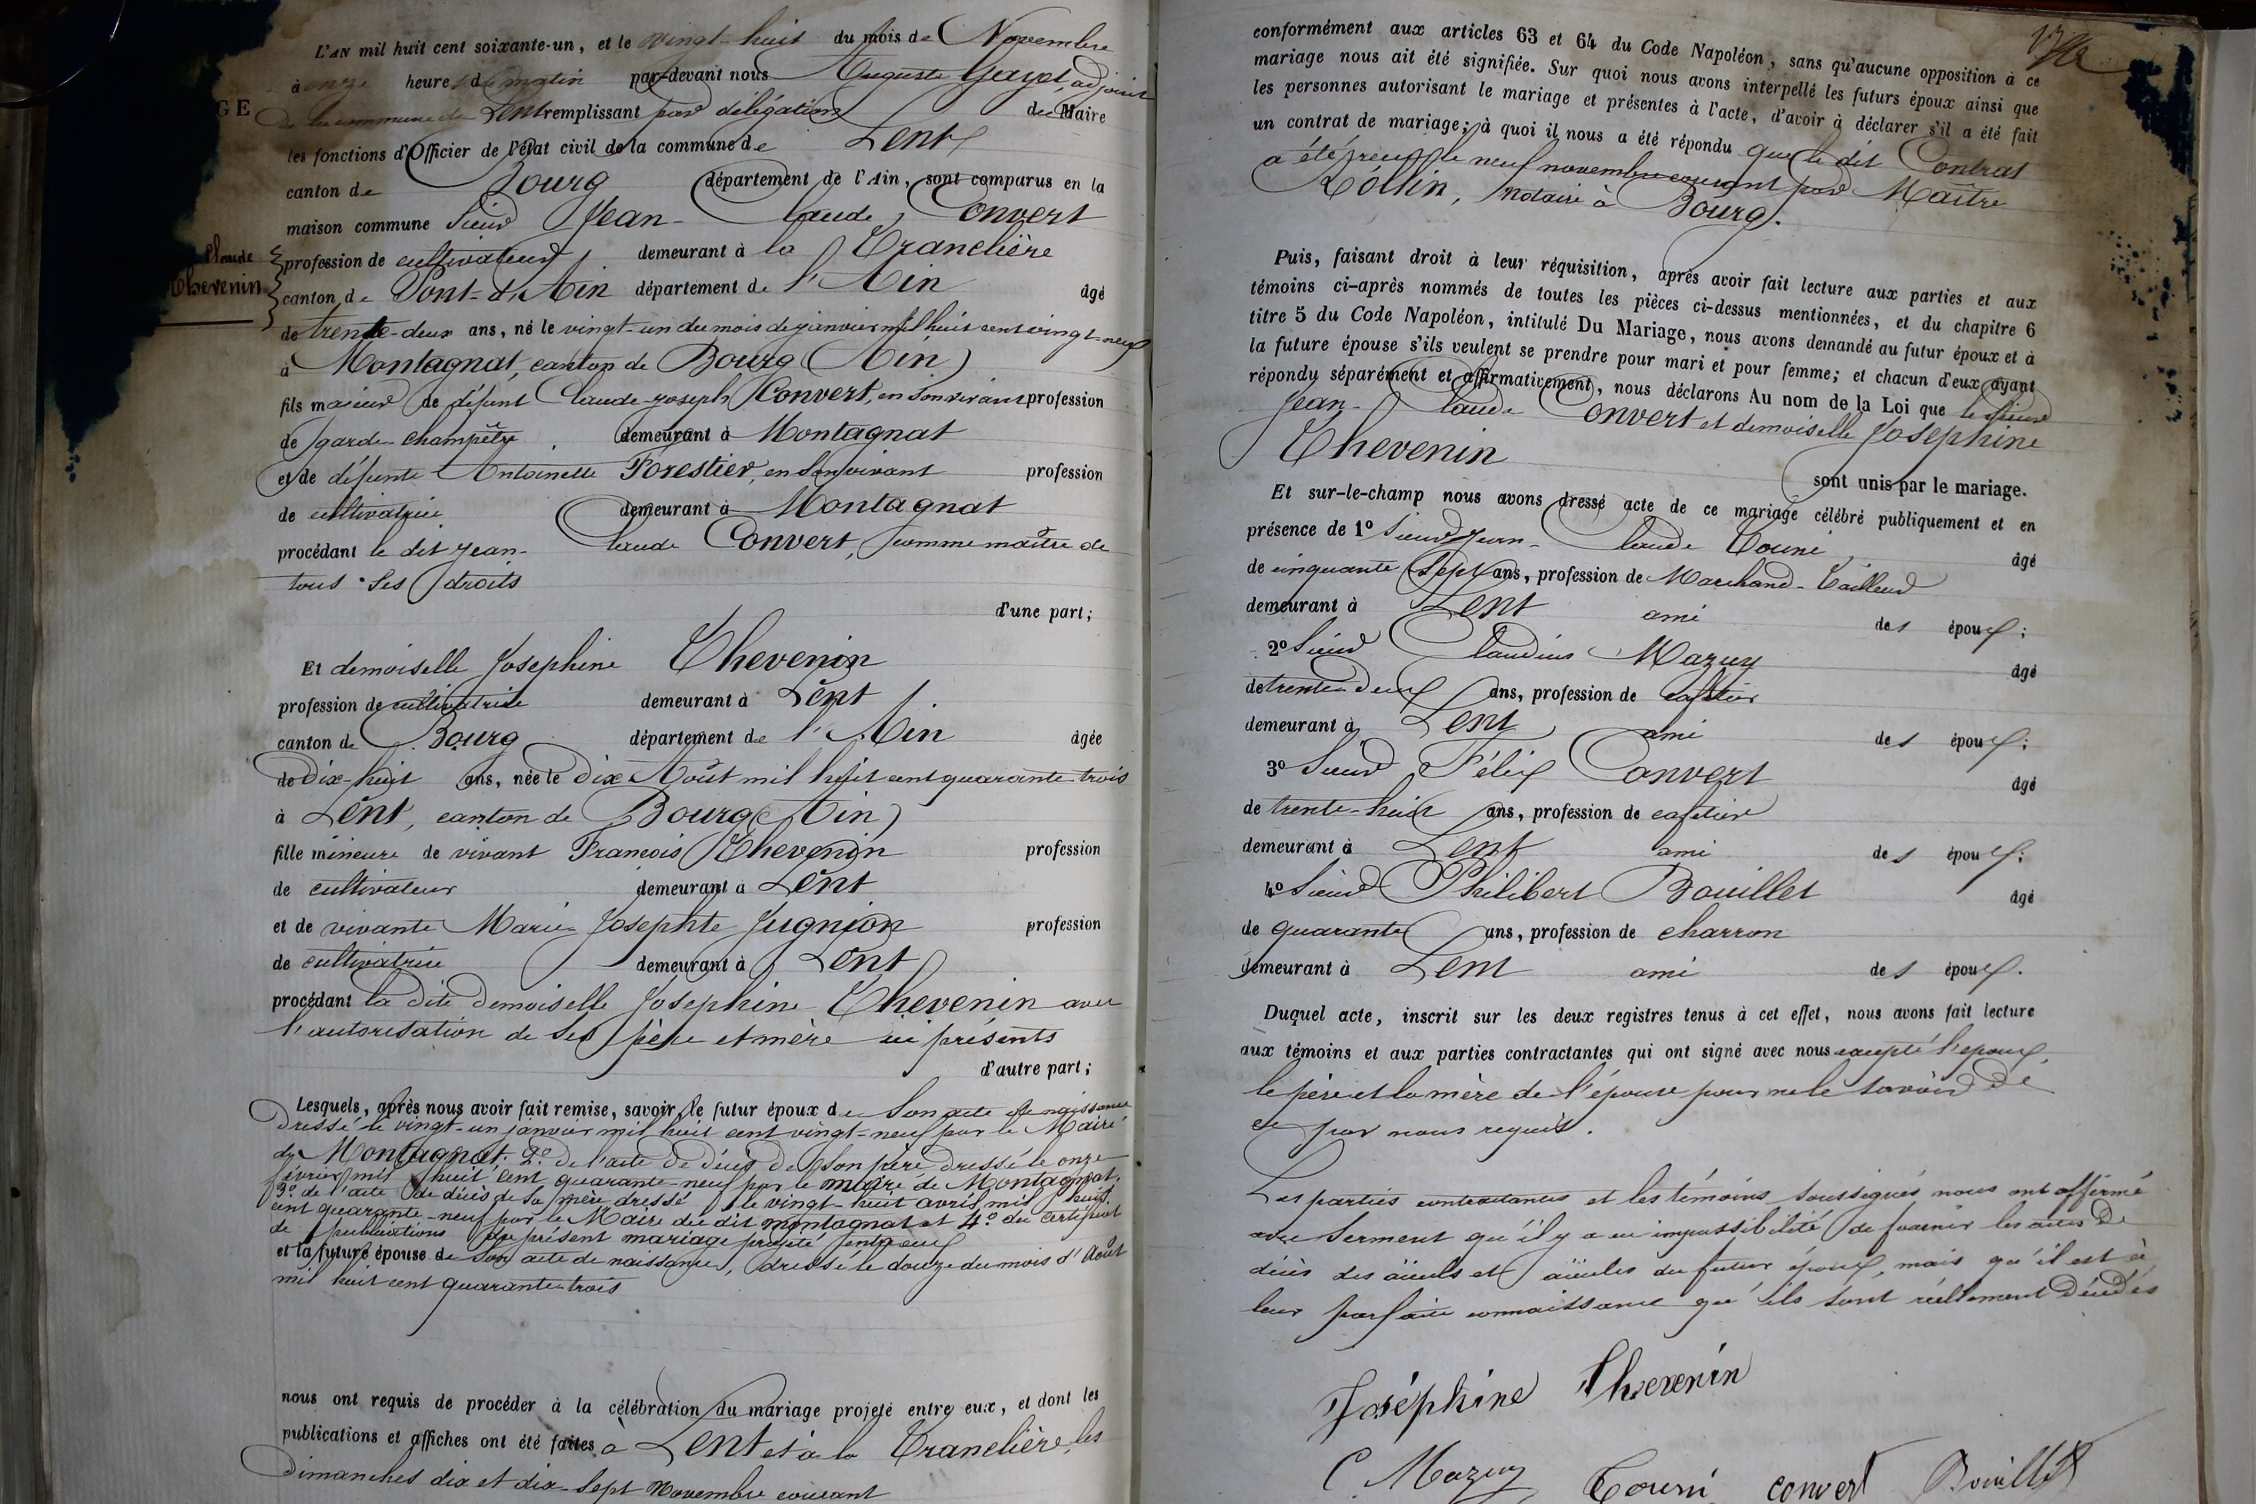 GE
Claude
Chevenin
L'AN mil huit cent soixante-un, et le vingt-huit du mois de Novembre
à onze heures du matin par-devant nous Auguste Gayot, adjoint
de la commune de Lent remplissant par délégation de Maire
les fonctions d'Officier de l'état civil de la commune de Lent
canton de Bourg département de l'Ain, sont comparus en la
maison commune Sieur Jean-Claude Convert
profession de cultivateur demeurant à la Tranclière
canton de Pont-d'Ain département de l'Ain âgé
de trente-deux ans, né le vingt-un du mois de janvier mil huit cent vingt-neuf
à Montagnat, canton de Bourg (Ain)
fils majeur de défunt Claude-Joseph Convert, en son vivant profession
de garde-champêtre demeurant à Montagnat
et de défunte Antoinette Forestier, en son vivant profession
de cultivatrice demeurant à Montagnat
procédant le dit Jean-Claude Convert, comme maître de
tous ses droits
d'une part;
Et demoiselle Josephine Chevenin
profession de cultivatrice demeurant à Lent
canton de Bourg département de l'Ain âgée
de Dix-huit ans, née le Dix Août mil huit cent quarante-trois
à Lent, canton de Bourg (Ain)
fille mineure de vivant Francois Chevenin profession
de cultivateur demeurant à Lent
et de vivante Marie Josephte Jugnion profession
de cultivatrice demeurant à Lent
procédant la dite Demoiselle Josephine Chevenin avec
l'autorisation de ses père et mère ici présents
d'autre part;
Lesquels, après nous avoir fait remise, savoir, le futur époux de son acte de naissance
Dressé le vingt-un janvier mil huit cent vingt-neuf par le Maire
de Montagnat. 2° de l'acte de décès de son père dressé le onze
février mil huit cent quarante-neuf par le maire de Montagnat.
3° de l'acte de décès de sa mère dressé le vingt-huit avril mil huit
cent quarante-neuf par le Maire du dit montagnat et 4° du certificat
de publications du présent mariage projeté entre eux
et la future épouse de son acte de naissance, dressé le douze du mois d'Août
mil huit cent quarante-trois
nous ont requis de procéder à la célébration du mariage projeté entre eux, et dont les
publications et affiches ont été faites à Lent et à la Tranclière, les
Dimanches dix et dix-sept Novembre courant
conformément aux articles 63 et 64 du Code Napoléon, sans qu'aucune opposition à ce
mariage nous ait été signifiée. Sur quoi nous avons interpellé les futurs époux ainsi que
les personnes autorisant le mariage et présentes à l'acte, d'avoir à déclarer s'il a été fait
un contrat de mariage; à quoi il nous a été répondu que le dit Contrat
a été reçu le neuf novembre courant par Maître
Rollin, notaire à Bourg.
Puis, faisant droit à leur réquisition, après avoir fait lecture aux parties et aux
témoins ci-après nommés de toutes les pièces ci-dessus mentionnées, et du chapitre 6
titre 5 du Code Napoléon, intitulé Du Mariage, nous avons demandé au futur époux et à
la future épouse s'ils veulent se prendre pour mari et pour femme; et chacun d'eux ayant
répondu séparément et affirmativement, nous déclarons Au nom de la Loi que le sieur
Jean-Claude Convert et demoiselle Josephine
Chevenin
sont unis par le mariage.
Et sur-le-champ nous avons dressé acte de ce mariage célébré publiquement et en
présence de 1° Sieur Jean-Claude Touni, âgé
de cinquante sept ans, profession de Marchand-Tailleur
demeurant à Lent ami des époux;
2° Sieur Claudius Mazuy âgé
de trente-deux ans, profession de cafetier
demeurant à Lent ami des époux;
3° Sieur Félix Convert âgé
de trente-huit ans, profession de cafetier
demeurant à Lent ami des époux;
4° Sieur Philibert Bouillet âgé
de quarante ans, profession de charron
demeurant à Lent ami des époux.
Duquel acte, inscrit sur les deux registres tenus à cet effet, nous avons fait lecture
aux témoins et aux parties contractantes qui ont signé avec nous excepté l'époux,
le père et la mère de l'épouse pour ne le savoir de
ce par nous requis.
Les parties contractantes et les témoins soussignés nous ont affirmé
avec serment qu'il y a eu impossibilité de fournir les actes de
décès des aïeuls et aïeules du futur époux, mais qu'il est à
leur parfaite connaissance qu'ils sont réellement Décédés
Joséphine Thevenin
C. Mazuy Touni convert Bouillet